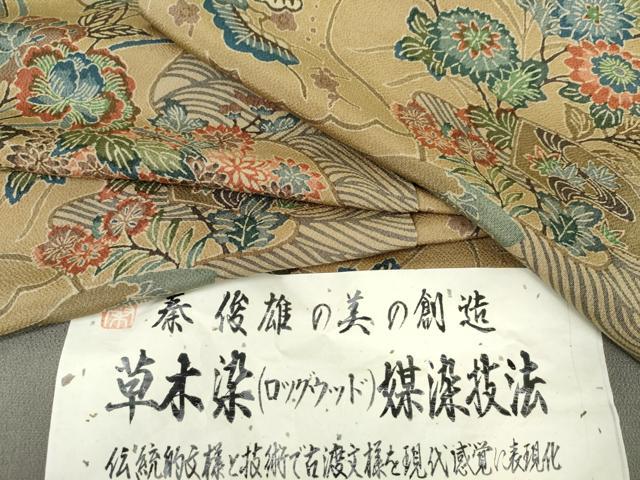 秦俊雄の美の創造
草木染(ロッグウッド)媒染技法
伝統的文様と技術で古渡文様を現代感覚に表現化